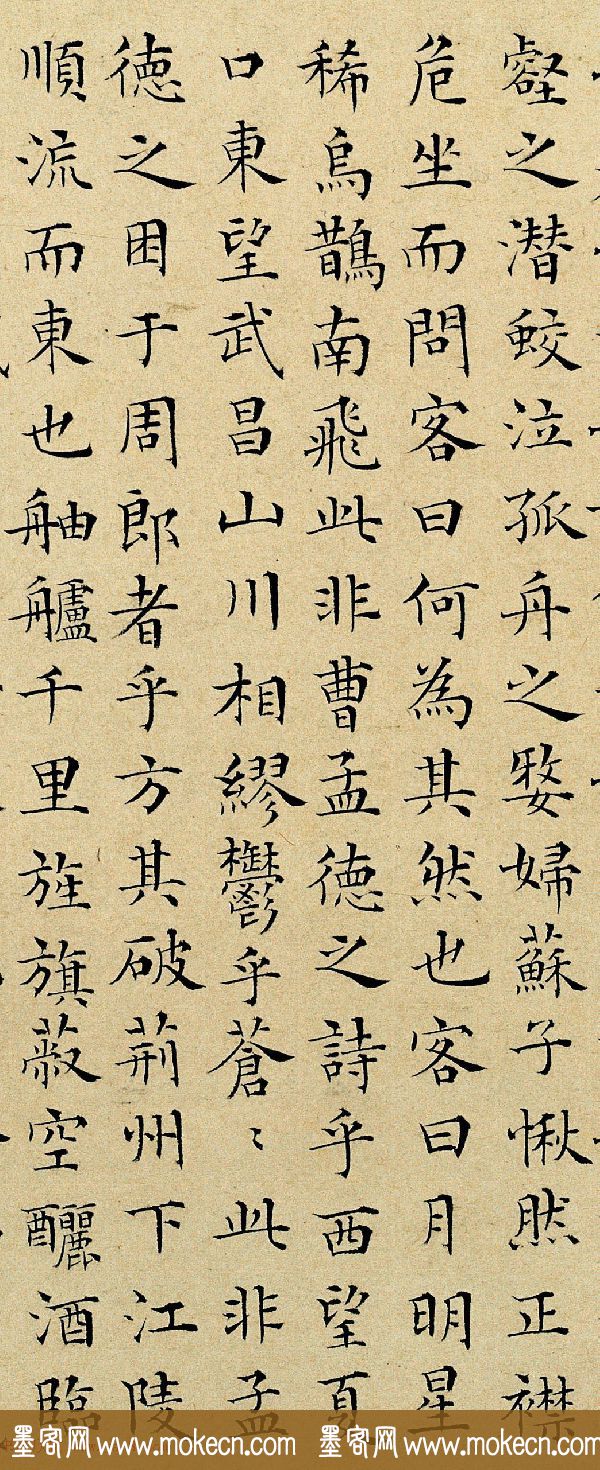 壑之潜蛟泣孤舟之嫠婦蘇子愀然正襟
危坐而問客曰何為其然也客曰月明星
稀烏鵲南飛此非曹孟德之詩乎西望夏
口東望武昌山川相繆鬱乎蒼〻此非孟
德之困于周郎者乎方其破荊州下江陵
順流而東也舳艫千里旌旗蔽空釃酒臨
墨客网 www.mokecn.com 墨客网 www.mokecn.com